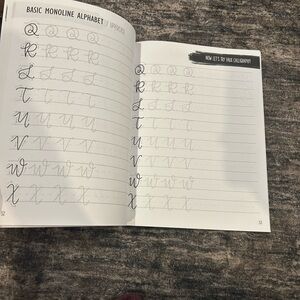 BASIC MONOLINE ALPHABET // UPPERCASE
Q Q Q Q
R R R R
S S S S
T T T T
U U U U
V V V V
W W W W
X X X X
52
NOW LET'S TRY FAUX CALLIGRAPHY!
Q Q Q Q
R R R R
S S S S
T T T T
U U U U
V V V V
W W W W
X X X X
53